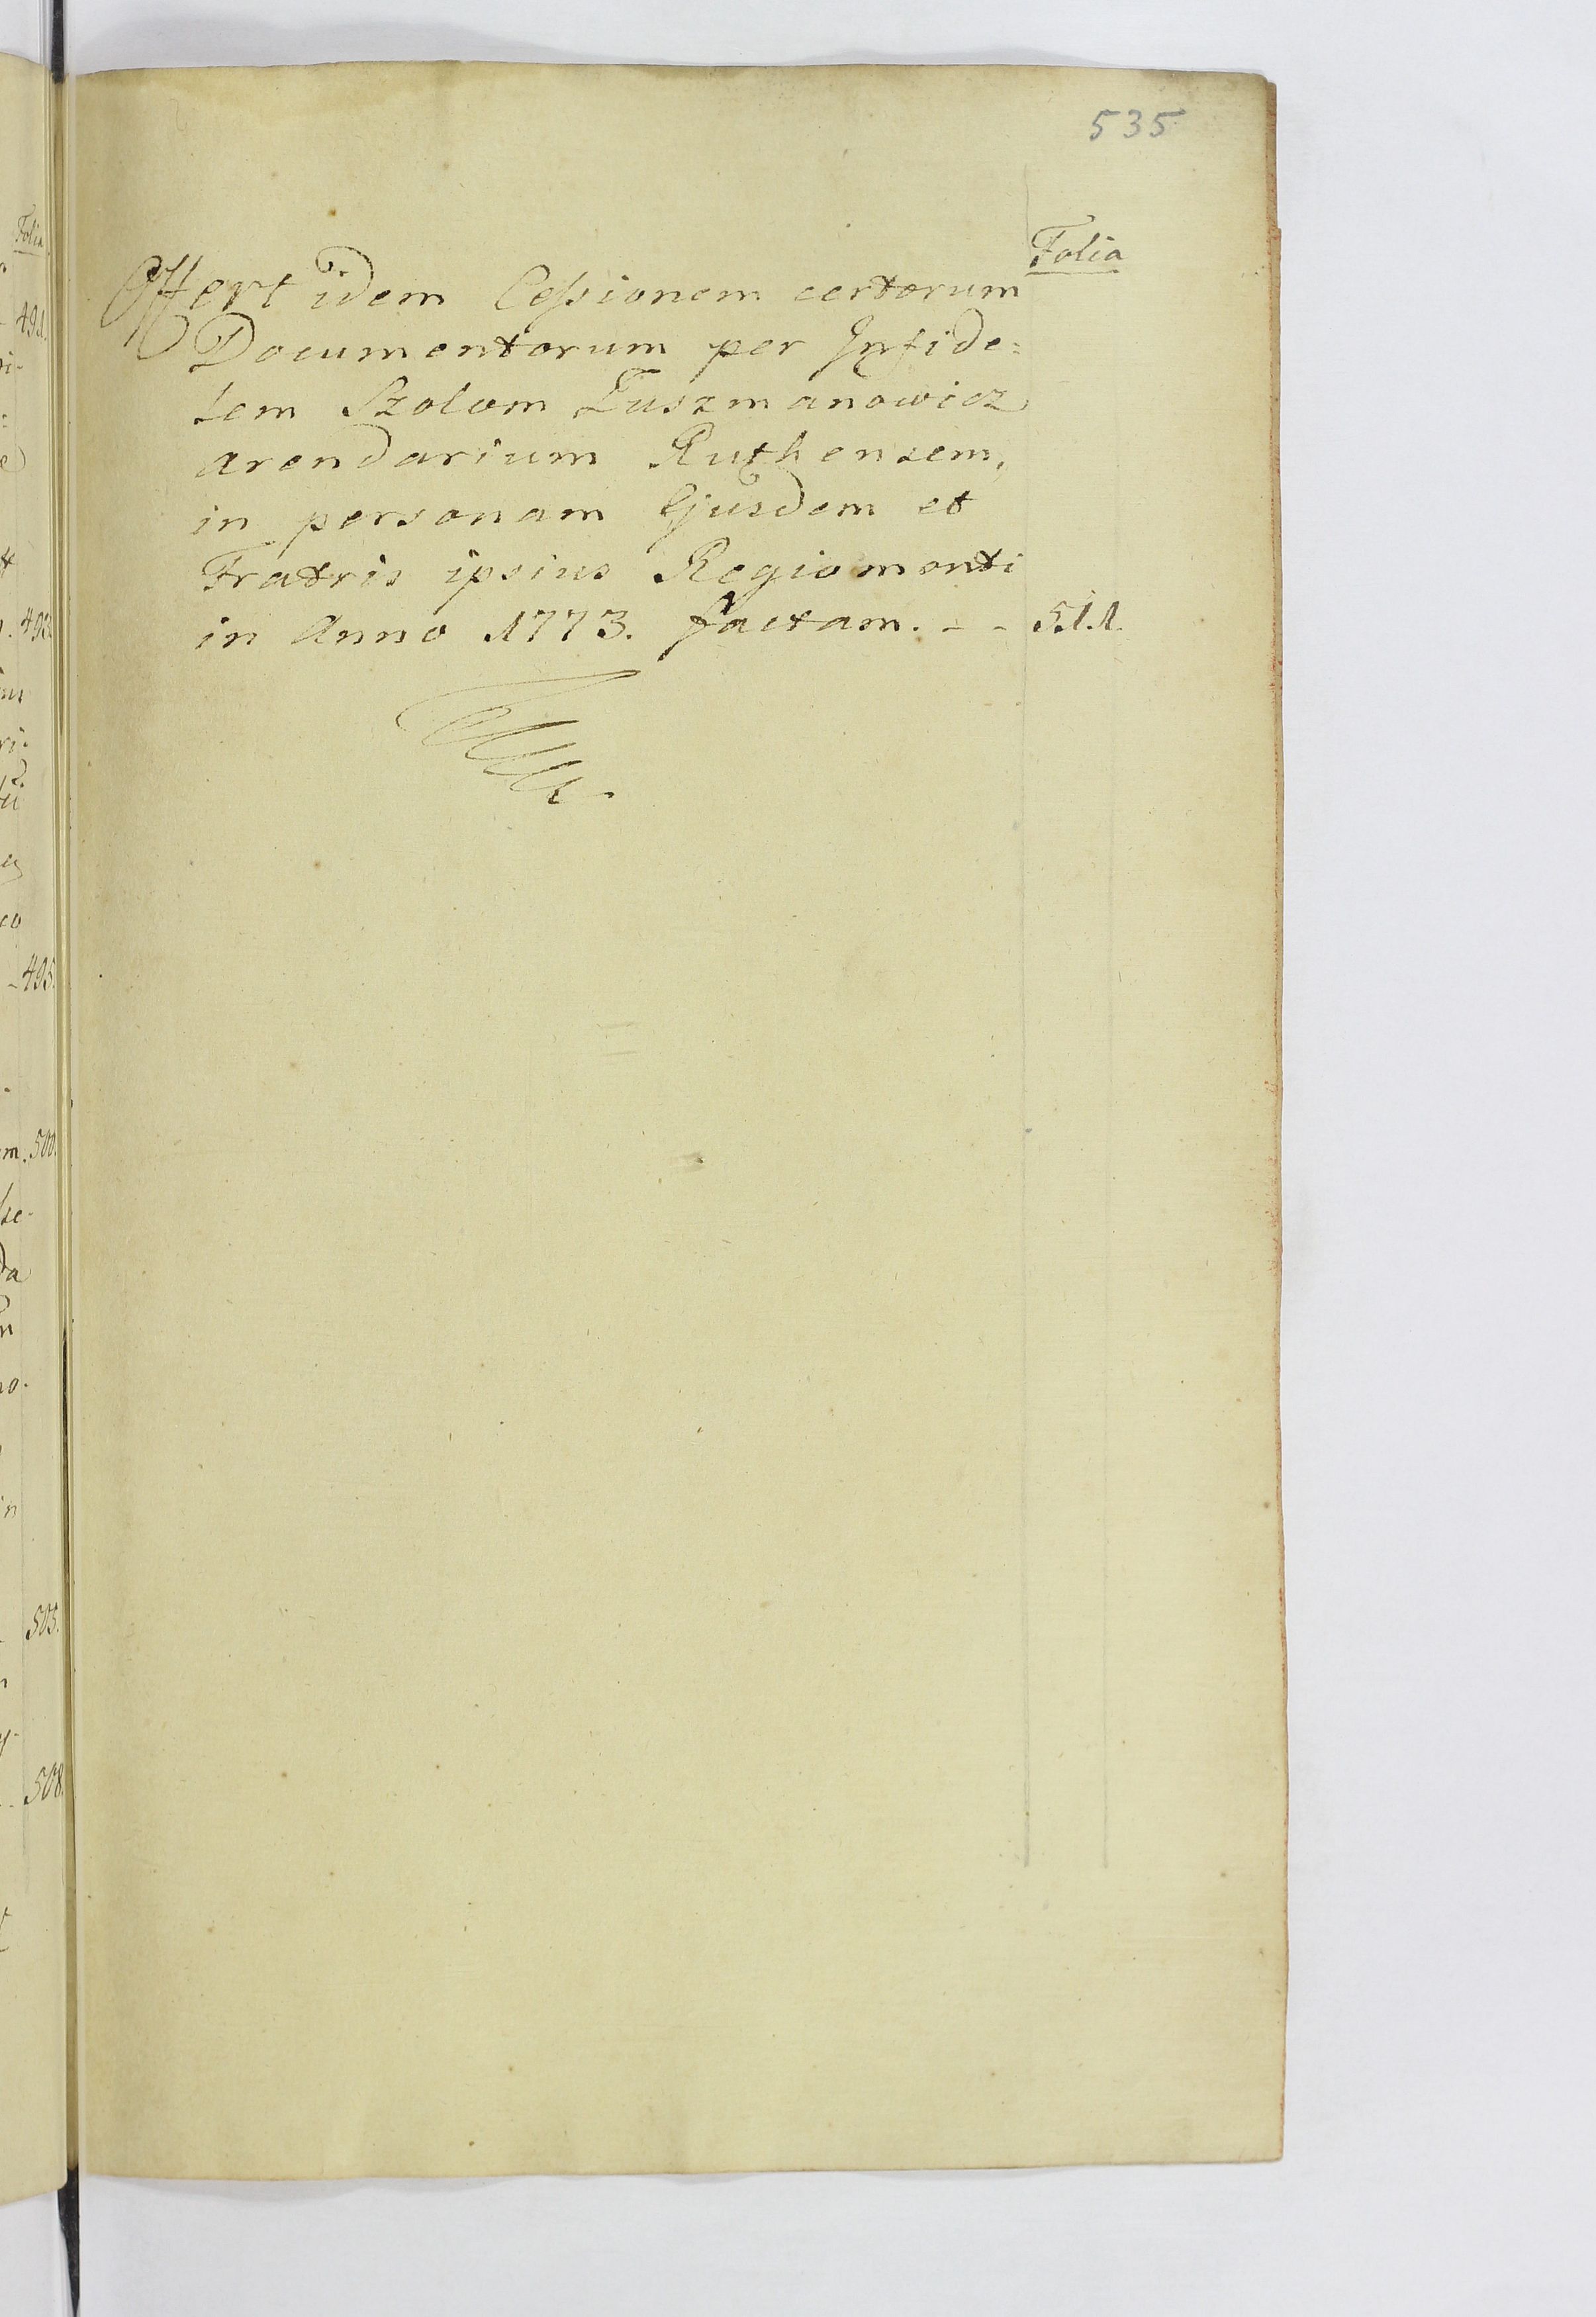 535
Folia
Offert idem Cessionem certorum
Documentorum per Infide=
lem Szolom Tuszmanowicz
arendarium Ruthensem,
in personam Ejusdem et
Fratris ipsius Regiomonti
in Anno 1773. factam. - - 511.
Folia
491.
493.
495.
500.
503.
508.